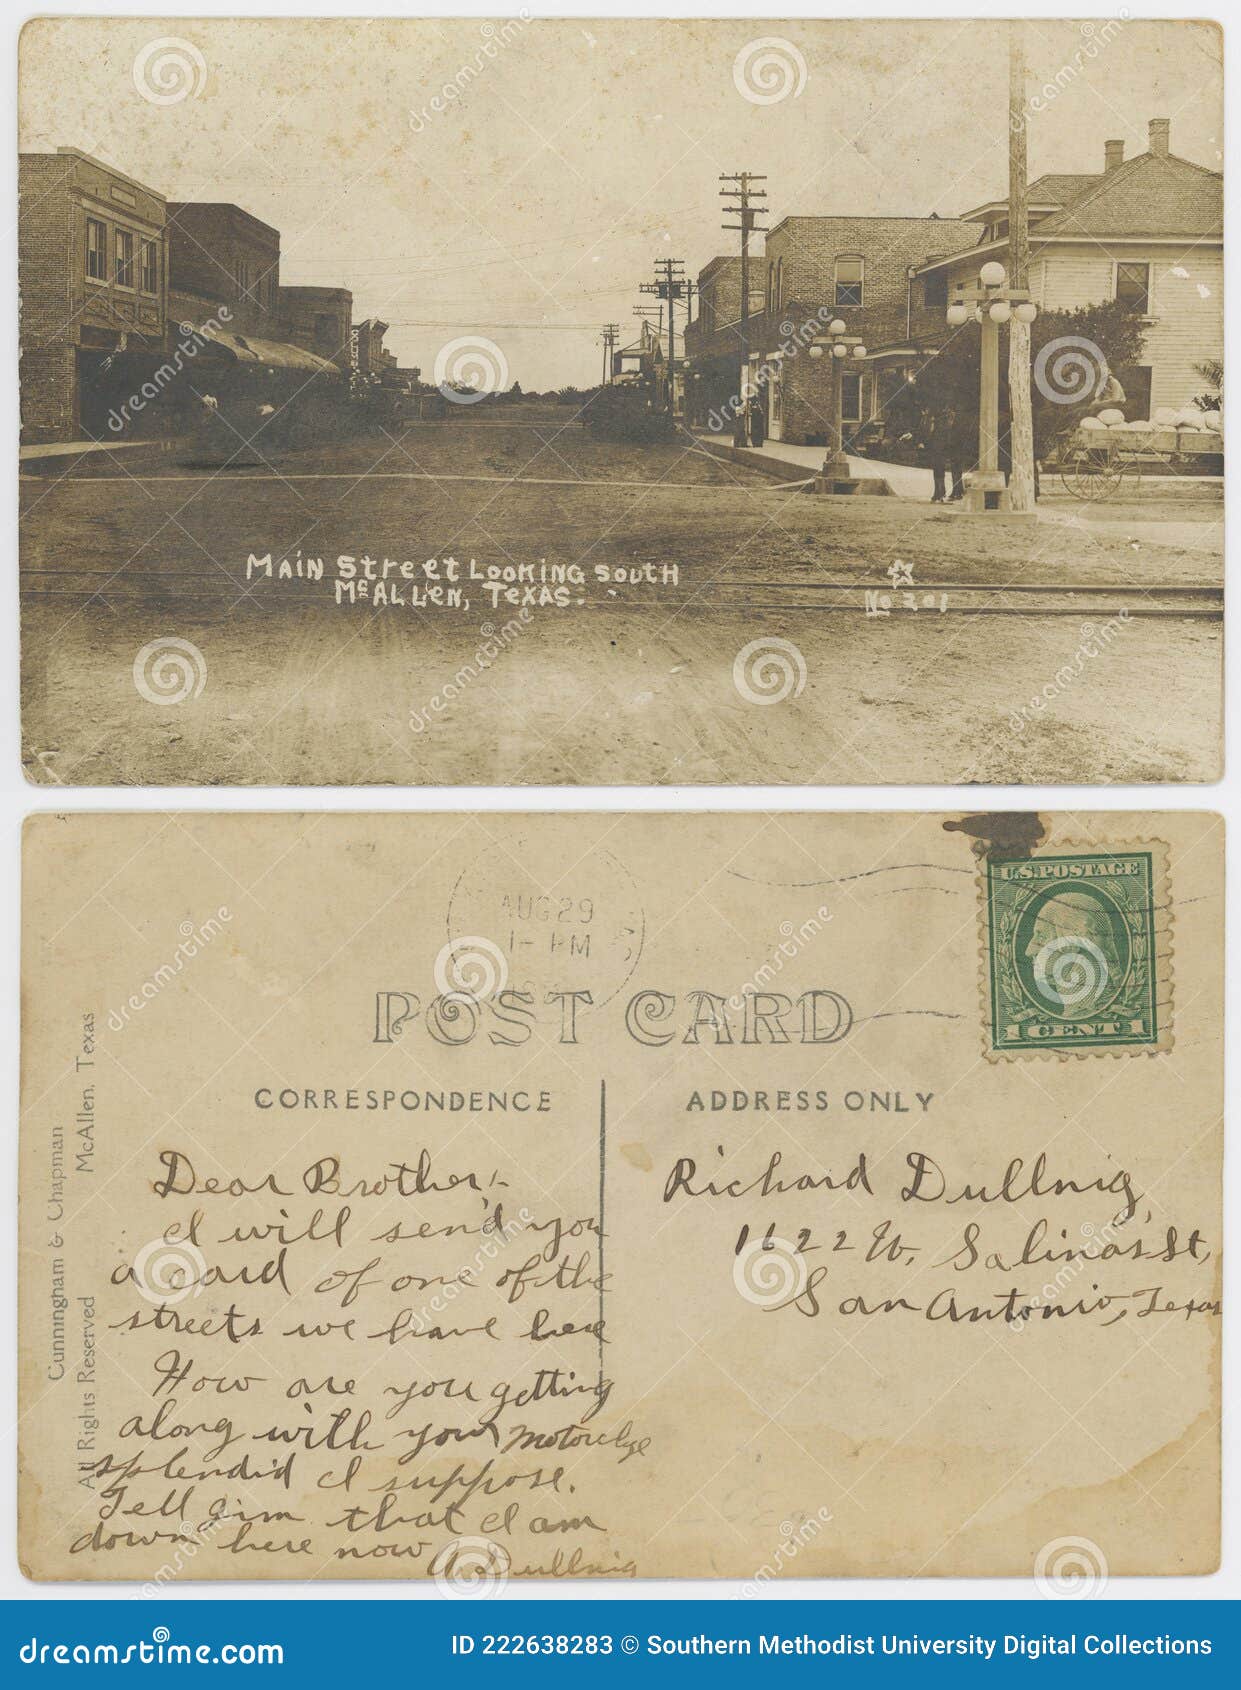 MAIN STREET LOOKING SOUTH
McALLEN, TEXAS.
No 201
AUG 29
1- PM
U.S. POSTAGE
1 CENT 1
POST CARD
CORRESPONDENCE
ADDRESS ONLY
Cunningham & Chapman
All Rights Reserved McAllen, Texas
Dear Brother,-
I will send you
a card of one of the
streets we have here
How are you getting
along with your
splendid I suppose.
Tell Jim that I am
down here now
A. Dullnig
Richard Dullnig,
1622 W. Salinas St,
San Antonio, Texas
dreamstime.com
ID 222638283 © Southern Methodist University Digital Collections